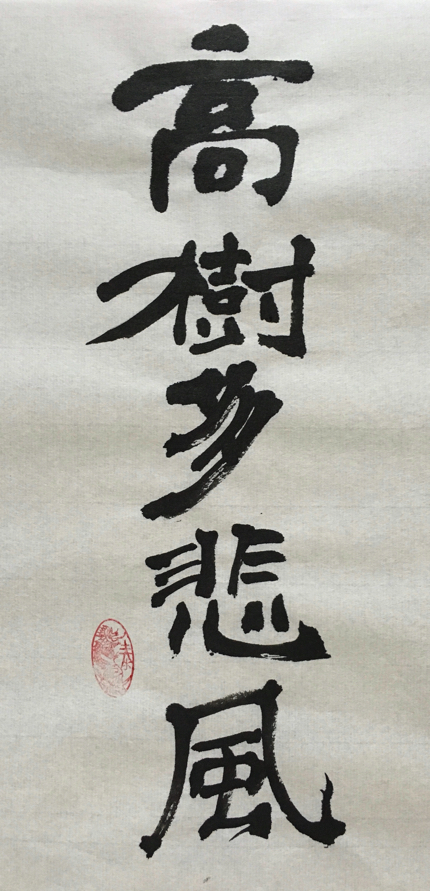 高樹多悲風